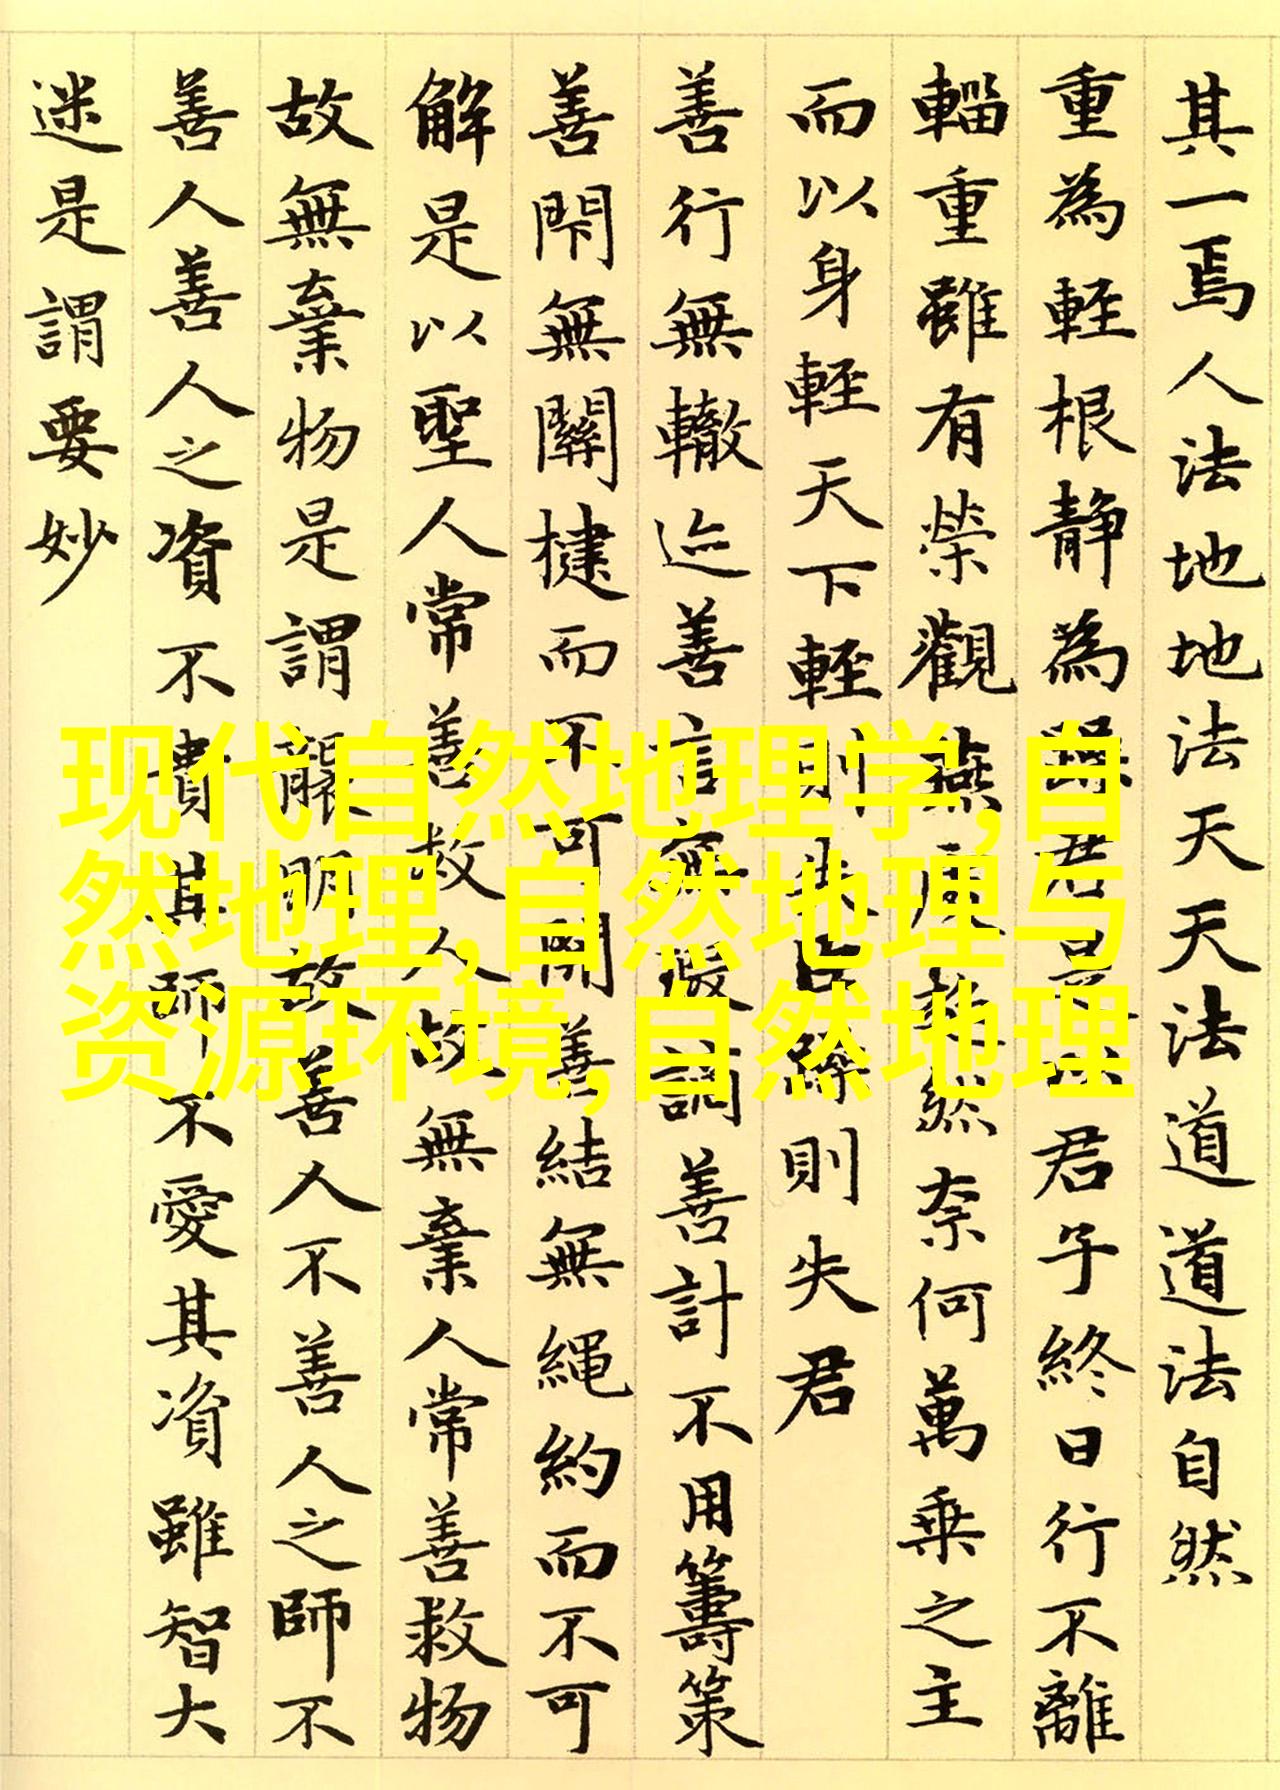 其一焉人法地地法天天法道道法自然
重為輕根静為躁君是以君子終日行不離
輜重雖有榮觀燕處超然奈何萬乗之主
而以身輕天下輕則失臣躁則失君
善行無轍迹善言無瑕讁善計不用籌策
善閇無關楗而不可開善結無繩約而不可
解是以聖人常善救人故無棄人常善救物
故無棄物是謂襲明故善人不善人之師不
善人善人之資不貴其師不愛其資雖智大
迷是謂要妙
现代自然地理学,自
然地理,自然地理与
资源环境,自然地理